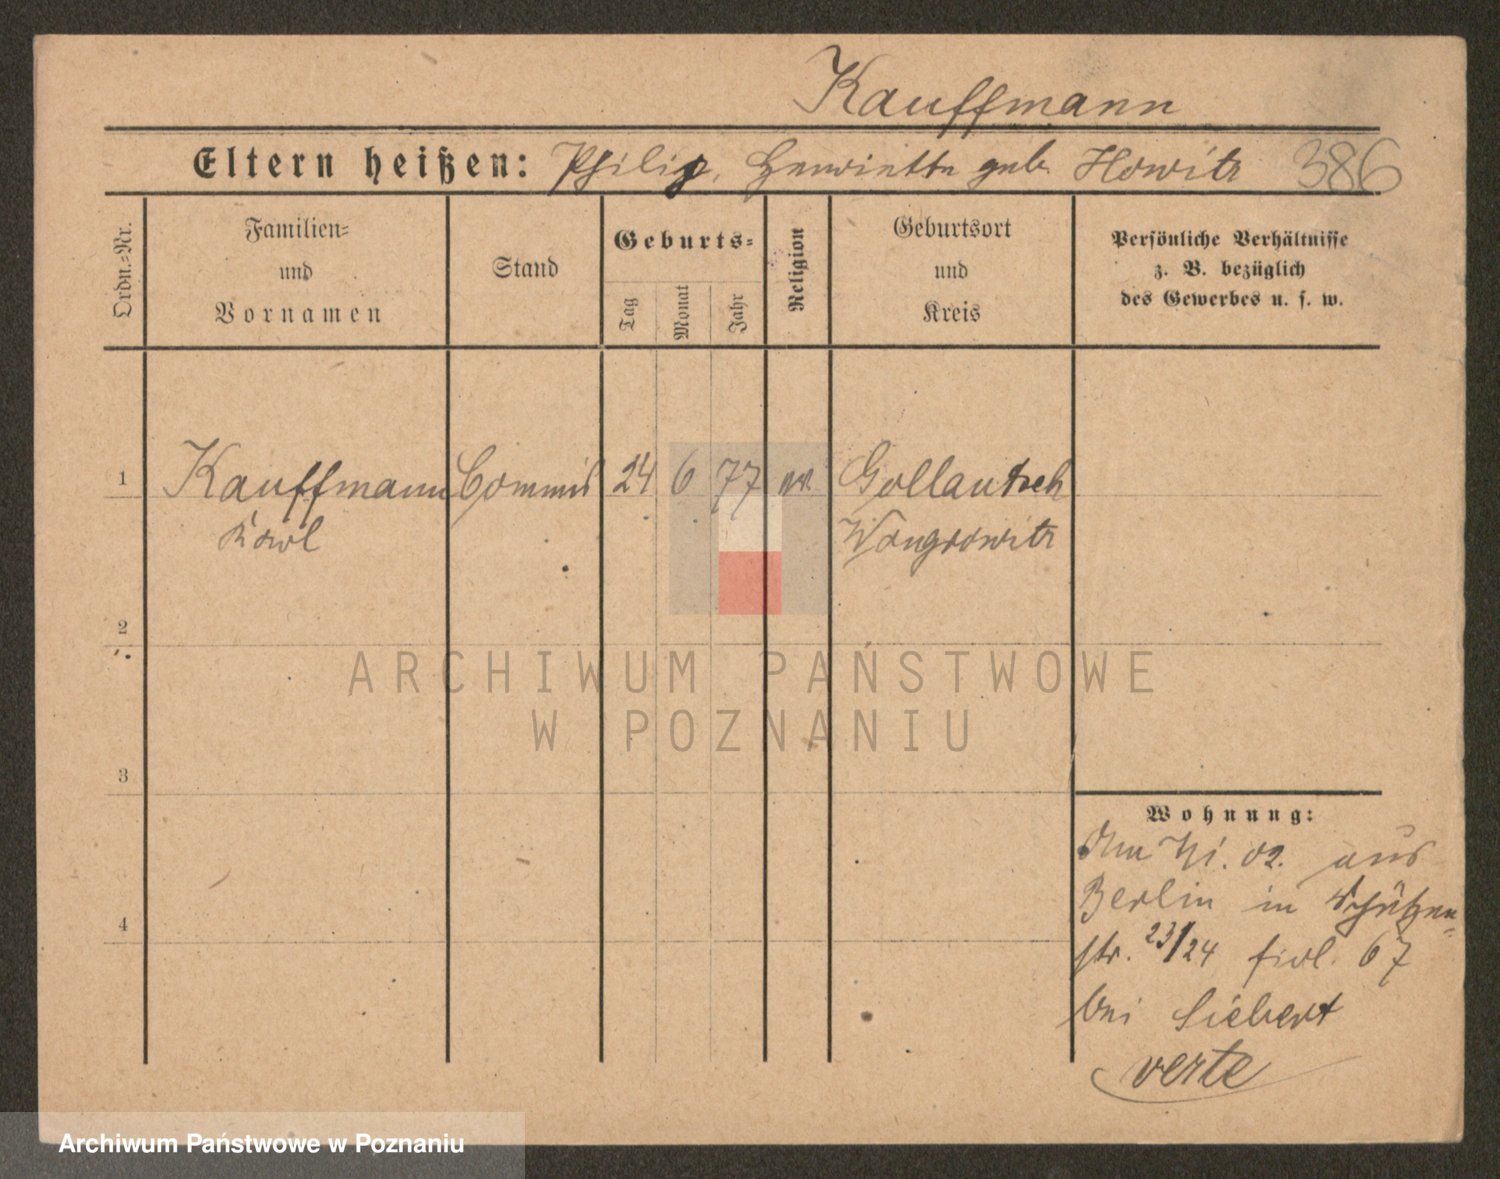 Kauffmann
Eltern heißen: Philip, Henriette geb. Howitz 386
Ordn.-Nr.
Familien-
und
Vornamen
Stand
Geburts-
Tag
Monat
Jahr
Religion
Geburtsort
und
Kreis
Persönliche Verhältnisse
z. B. bezüglich
des Gewerbes u. s. w.
1 Kauffmann Commis 24 6 77 Gollantsch
Karl Wongrowitz
2
3
4
ARCHIWUM PAŃSTWOWE
W POZNANIU
Wohnung:
02. aus
Berlin in Schützen-
str. 23/24 67
bei Siebert
verte
Archiwum Państwowe w Poznaniu